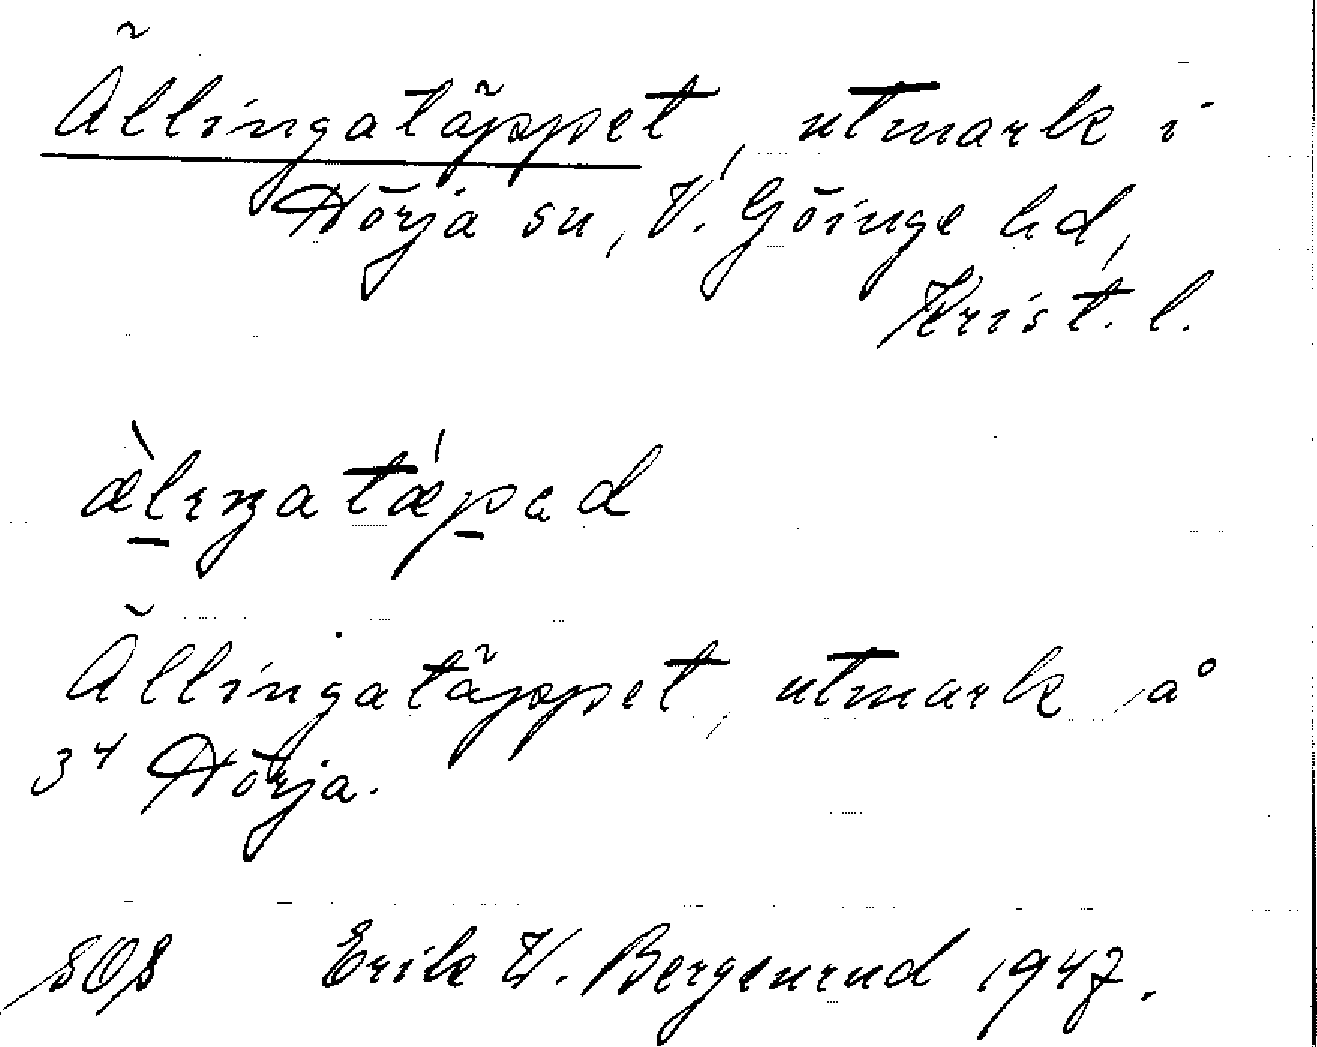 Ällingatäppet, utmark i
Hörja sn, V. Göinge hd,
Krist. l.
æ̀l̠ıŋatǽp̠əd
Ällingatäppet, utmark å
3⁴ Hörja.
SOS Erik W. Bergenrud 1947.